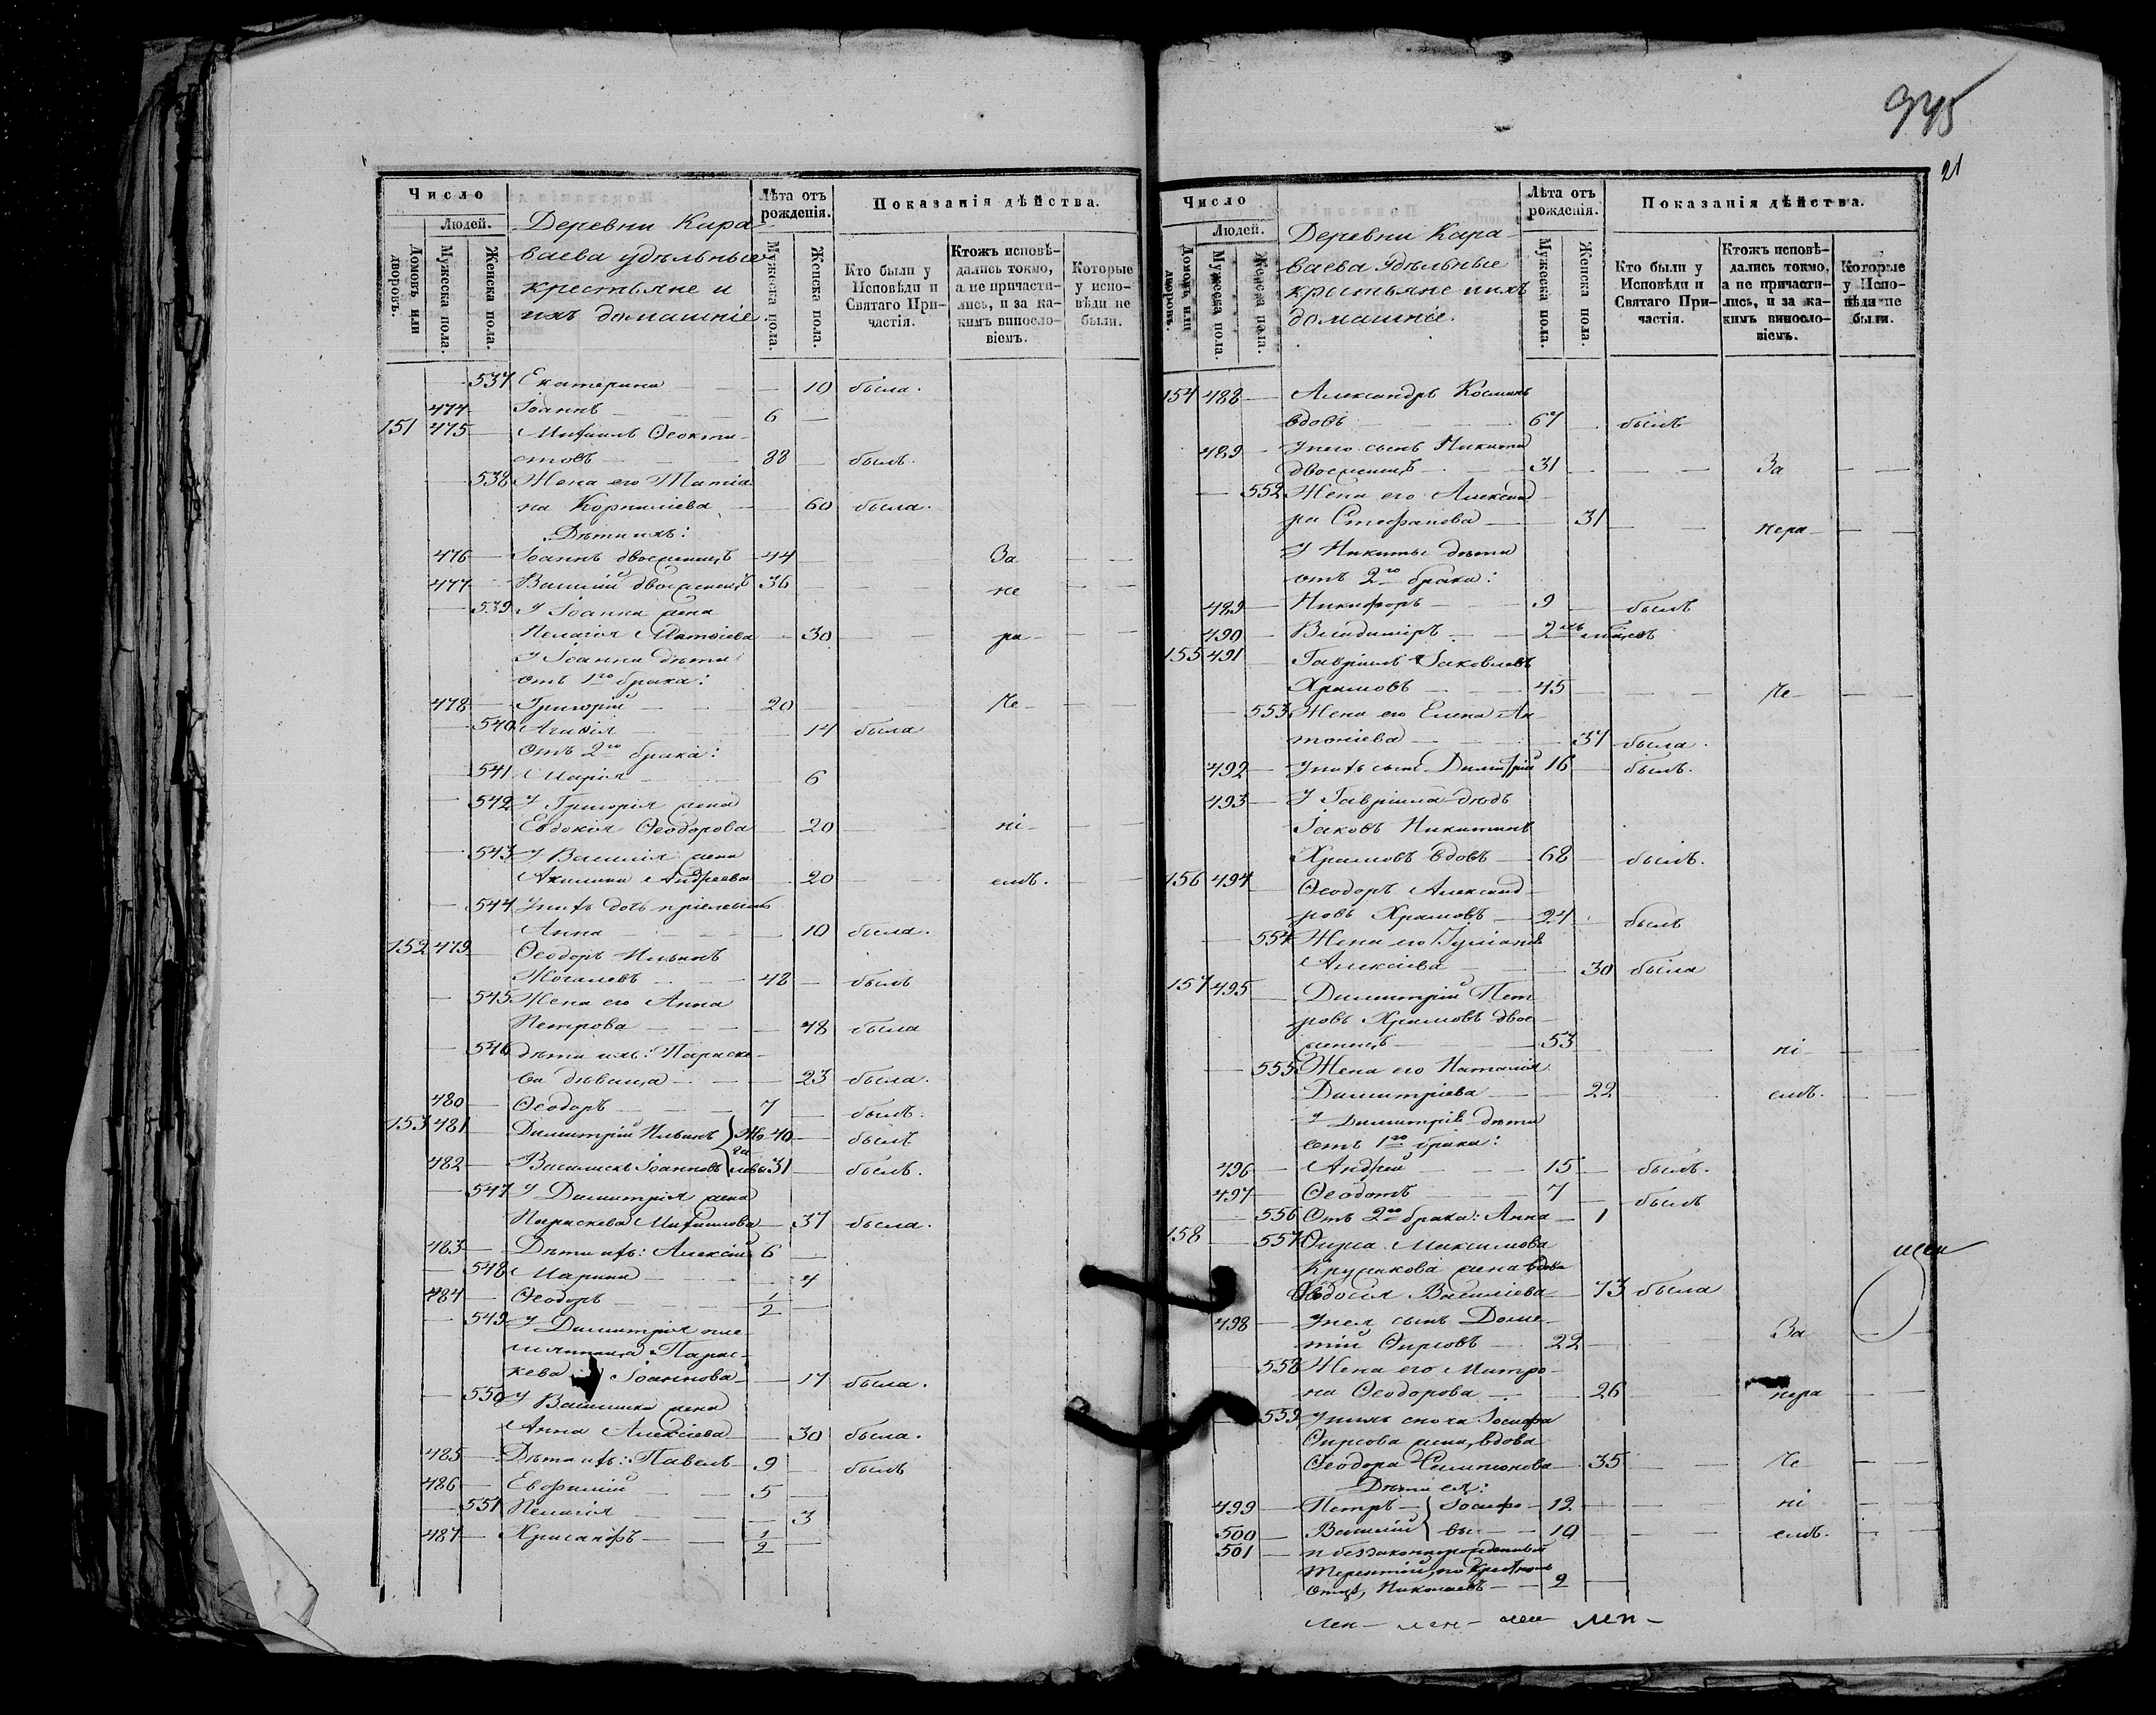 Число
Людей.
Домовъ или дворовъ.
Мужеска пола.
Женска пола.
Деревни Кара-
ваева удѣльные
крестьяне и
ихъ домашніе.
Лѣта отъ рожденія.
Мужеска пола.
Женска пола.
Показанія дѣйства.
Кто были у Исповѣди и Святаго Причастія.
Ктожъ исповѣдались токмо, а не причастились, и за какимъ винословіемъ.
Которые у исповѣди не были.
537 Екатерина 10 была.
474 Іоаннъ 6
151 475 Михаилъ Ѳеокти-
стовъ 88 былъ.
538 Жена его Татіа-
на Корниліева 60 была.
Дѣти ихъ:
476 Іоаннъ двоеженецъ 44 За
477 Василій двоеженецъ 36 не
539 У Іоанна жена
Пелагія Матѳіева 30 ра-
У Іоанна дѣти
отъ 1го брака:
478 Григорій 20 че-
540 Агаѳія 14 была
Отъ 2го брака:
541 Марія 6
542 У Григорія жена
Евдокія Ѳеодорова 20 ні-
543 У Василія жена
Акилина Андреева 20 емъ.
544 У нихъ дочь пріемышъ
Анна 10 была.
152 479 Ѳеодоръ Ильинъ
48 былъ
545 Жена его Анна
Петрова 48 была
546 Дѣти ихъ: Параске-
ва дѣвица 23 была.
480 Ѳеодоръ 7 былъ.
153 481 Димитрій Ильинъ 40 былъ
482 Василискъ Іоанновъ 31 былъ.
547 У Димитрія жена
Параскева Михаилова 37 была.
483 Дѣти ихъ: Алексій 6
548 Марина 4
484 Ѳеодоръ 1/2
549 У Димитрія пле-
мянница Парас-
кева Іоаннова 17 была.
550 У Василиска жена
Анна Алексіева 30 была.
485 Дѣти ихъ: Павелъ 9 былъ
486 Евфимій 5
551 Пелагія 3
487 Хрисанфъ 1/2
945
21
Число
Людей.
Домовъ или дворовъ.
Мужеска пола.
Женска пола.
Деревни Кара-
ваева удѣльные
крестьяне и ихъ
домашніе.
Лѣта отъ рожденія.
Мужеска пола.
Женска пола.
Показанія дѣйства.
Кто были у Исповѣди и Святаго Причастія.
Ктожъ исповѣдались токмо, а не причастились, и за какимъ винословіемъ.
Которые у Исповѣди не были.
154 488 Александръ Косминъ
вдовъ 67 былъ
489 У него сынъ Никита
двоеженецъ 31 За
552 Жена его Александ-
ра Стефанова 31 нера-
У Никиты дѣти
отъ 2го брака:
489 Никифоръ 9 былъ
490 Владиміръ 2
155 491 Гавріилъ Іаковлевъ
Храмовъ 45 че-
553 Жена его Елена Ан-
тоніева 37 была.
492 У нихъ сынъ Димитрій 16 былъ.
493 У Гавріила дѣдъ
Іаковъ Никитинъ
Храмовъ вдовъ 68 былъ.
156 494 Ѳеодоръ Александ-
ровъ Храмовъ 24 былъ
554 Жена его Іуліанія
Алексіева 30 была
157 495 Димитрій Пет-
ровъ Храмовъ двое-
женецъ 53 ні-
555 Жена его Наталія
Димитріева 22 емъ.
У Димитрія дѣти
отъ 1го брака:
496 Андрей 15 былъ.
497 Ѳеодотъ 7 былъ
556 Отъ 2го брака: Анна 1
158 557 Ѳирса Максимова
жена вдова
Ѳеодосія Василіева 73 была
498 У нея сынъ Доме-
тій Ѳирсовъ 22 За
558 Жена его Матро-
на Ѳеодорова 26 нера
559 У нихъ сноха Іосифа
Ѳирсова жена, вдова
Ѳеодора 35 че
Дѣти ея:
499 Петръ Іосифо- 12 ні
500 Василій вы 10 емъ.
501 и беззаконнорожденный
Терентій, по крестномъ
отцѣ, Николаевъ 2